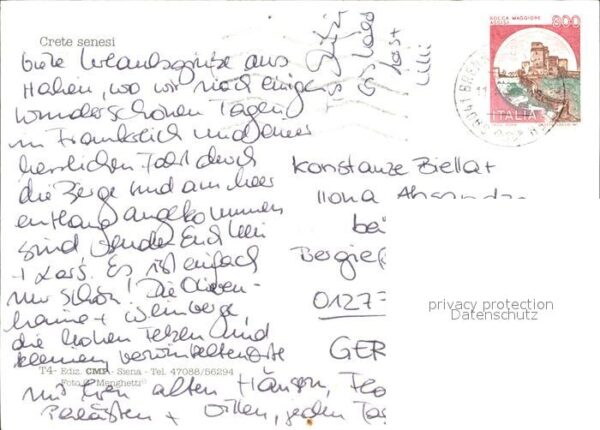 Crete senesi
liebe Urlaubsgrüße aus
Italien, wo wir nach einigen
wunderschönen Tagen
in Frankreich und einer
herrlichen Fahrt durch
die Berge und am Meer
entlang angekommen
sind senden Euch Lilli
+ Lars. Es ist einfach
nur schön! Die Oliven-
haine + Weinberge,
die hohen Felsen und
kleinen verwinkelten Orte
T4- Ediz. CMP - Siena - Tel. 47088/56294
Foto G. Menghetti
mit ihren alten Häusern,
Palästen + Villen, jeden Ta
Lilli
ROCCA MAGGIORE
ASSISI
800
ITALIA
Konstanze Biella +
Ilona
bei
0127
GER
privacy protection
Datenschutz